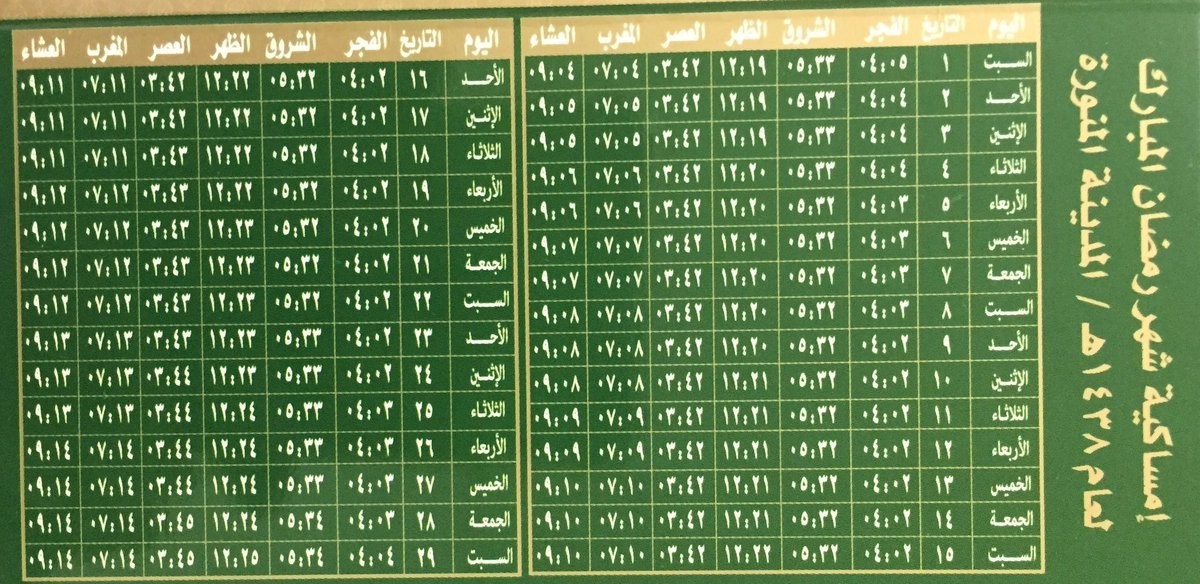 إمساكية شهر رمضان المبارك
لعام ١٤٣٨هـ / المدينة المنورة
اليوم التاريخ الفجر الشروق الظهر العصر المغرب العشاء
السبت ١ ٠٤:٠٥ ٠٥:٣٣ ١٢:١٩ ٠٣:٤٢ ٠٧:٠٤ ٠٩:٠٤
الأحد ٢ ٠٤:٠٤ ٠٥:٣٣ ١٢:١٩ ٠٣:٤٢ ٠٧:٠٥ ٠٩:٠٥
الإثنين ٣ ٠٤:٠٤ ٠٥:٣٣ ١٢:١٩ ٠٣:٤٢ ٠٧:٠٥ ٠٩:٠٥
الثلاثاء ٤ ٠٤:٠٤ ٠٥:٣٣ ١٢:٢٠ ٠٣:٤٢ ٠٧:٠٦ ٠٩:٠٦
الأربعاء ٥ ٠٤:٠٣ ٠٥:٣٢ ١٢:٢٠ ٠٣:٤٢ ٠٧:٠٦ ٠٩:٠٦
الخميس ٦ ٠٤:٠٣ ٠٥:٣٢ ١٢:٢٠ ٠٣:٤٢ ٠٧:٠٧ ٠٩:٠٧
الجمعة ٧ ٠٤:٠٣ ٠٥:٣٢ ١٢:٢٠ ٠٣:٤٢ ٠٧:٠٧ ٠٩:٠٧
السبت ٨ ٠٤:٠٣ ٠٥:٣٢ ١٢:٢٠ ٠٣:٤٢ ٠٧:٠٨ ٠٩:٠٨
الأحد ٩ ٠٤:٠٢ ٠٥:٣٢ ١٢:٢٠ ٠٣:٤٢ ٠٧:٠٨ ٠٩:٠٨
الإثنين ١٠ ٠٤:٠٢ ٠٥:٣٢ ١٢:٢١ ٠٣:٤٢ ٠٧:٠٨ ٠٩:٠٨
الثلاثاء ١١ ٠٤:٠٢ ٠٥:٣٢ ١٢:٢١ ٠٣:٤٢ ٠٧:٠٩ ٠٩:٠٩
الأربعاء ١٢ ٠٤:٠٢ ٠٥:٣٢ ١٢:٢١ ٠٣:٤٢ ٠٧:٠٩ ٠٩:٠٩
الخميس ١٣ ٠٤:٠٢ ٠٥:٣٢ ١٢:٢١ ٠٣:٤٢ ٠٧:١٠ ٠٩:١٠
الجمعة ١٤ ٠٤:٠٢ ٠٥:٣٢ ١٢:٢١ ٠٣:٤٢ ٠٧:١٠ ٠٩:١٠
السبت ١٥ ٠٤:٠٢ ٠٥:٣٢ ١٢:٢٢ ٠٣:٤٢ ٠٧:١٠ ٠٩:١٠
اليوم التاريخ الفجر الشروق الظهر العصر المغرب العشاء
الأحد ١٦ ٠٤:٠٢ ٠٥:٣٢ ١٢:٢٢ ٠٣:٤٢ ٠٧:١١ ٠٩:١١
الإثنين ١٧ ٠٤:٠٢ ٠٥:٣٢ ١٢:٢٢ ٠٣:٤٢ ٠٧:١١ ٠٩:١١
الثلاثاء ١٨ ٠٤:٠٢ ٠٥:٣٢ ١٢:٢٢ ٠٣:٤٣ ٠٧:١١ ٠٩:١١
الأربعاء ١٩ ٠٤:٠٢ ٠٥:٣٢ ١٢:٢٢ ٠٣:٤٣ ٠٧:١٢ ٠٩:١٢
الخميس ٢٠ ٠٤:٠٢ ٠٥:٣٢ ١٢:٢٣ ٠٣:٤٣ ٠٧:١٢ ٠٩:١٢
الجمعة ٢١ ٠٤:٠٢ ٠٥:٣٢ ١٢:٢٣ ٠٣:٤٣ ٠٧:١٢ ٠٩:١٢
السبت ٢٢ ٠٤:٠٢ ٠٥:٣٢ ١٢:٢٣ ٠٣:٤٣ ٠٧:١٢ ٠٩:١٢
الأحد ٢٣ ٠٤:٠٢ ٠٥:٣٣ ١٢:٢٣ ٠٣:٤٣ ٠٧:١٣ ٠٩:١٣
الإثنين ٢٤ ٠٤:٠٢ ٠٥:٣٣ ١٢:٢٣ ٠٣:٤٤ ٠٧:١٣ ٠٩:١٣
الثلاثاء ٢٥ ٠٤:٠٣ ٠٥:٣٣ ١٢:٢٤ ٠٣:٤٤ ٠٧:١٣ ٠٩:١٣
الأربعاء ٢٦ ٠٤:٠٣ ٠٥:٣٣ ١٢:٢٤ ٠٣:٤٤ ٠٧:١٤ ٠٩:١٤
الخميس ٢٧ ٠٤:٠٣ ٠٥:٣٣ ١٢:٢٤ ٠٣:٤٤ ٠٧:١٤ ٠٩:١٤
الجمعة ٢٨ ٠٤:٠٣ ٠٥:٣٤ ١٢:٢٤ ٠٣:٤٥ ٠٧:١٤ ٠٩:١٤
السبت ٢٩ ٠٤:٠٤ ٠٥:٣٤ ١٢:٢٥ ٠٣:٤٥ ٠٧:١٤ ٠٩:١٤